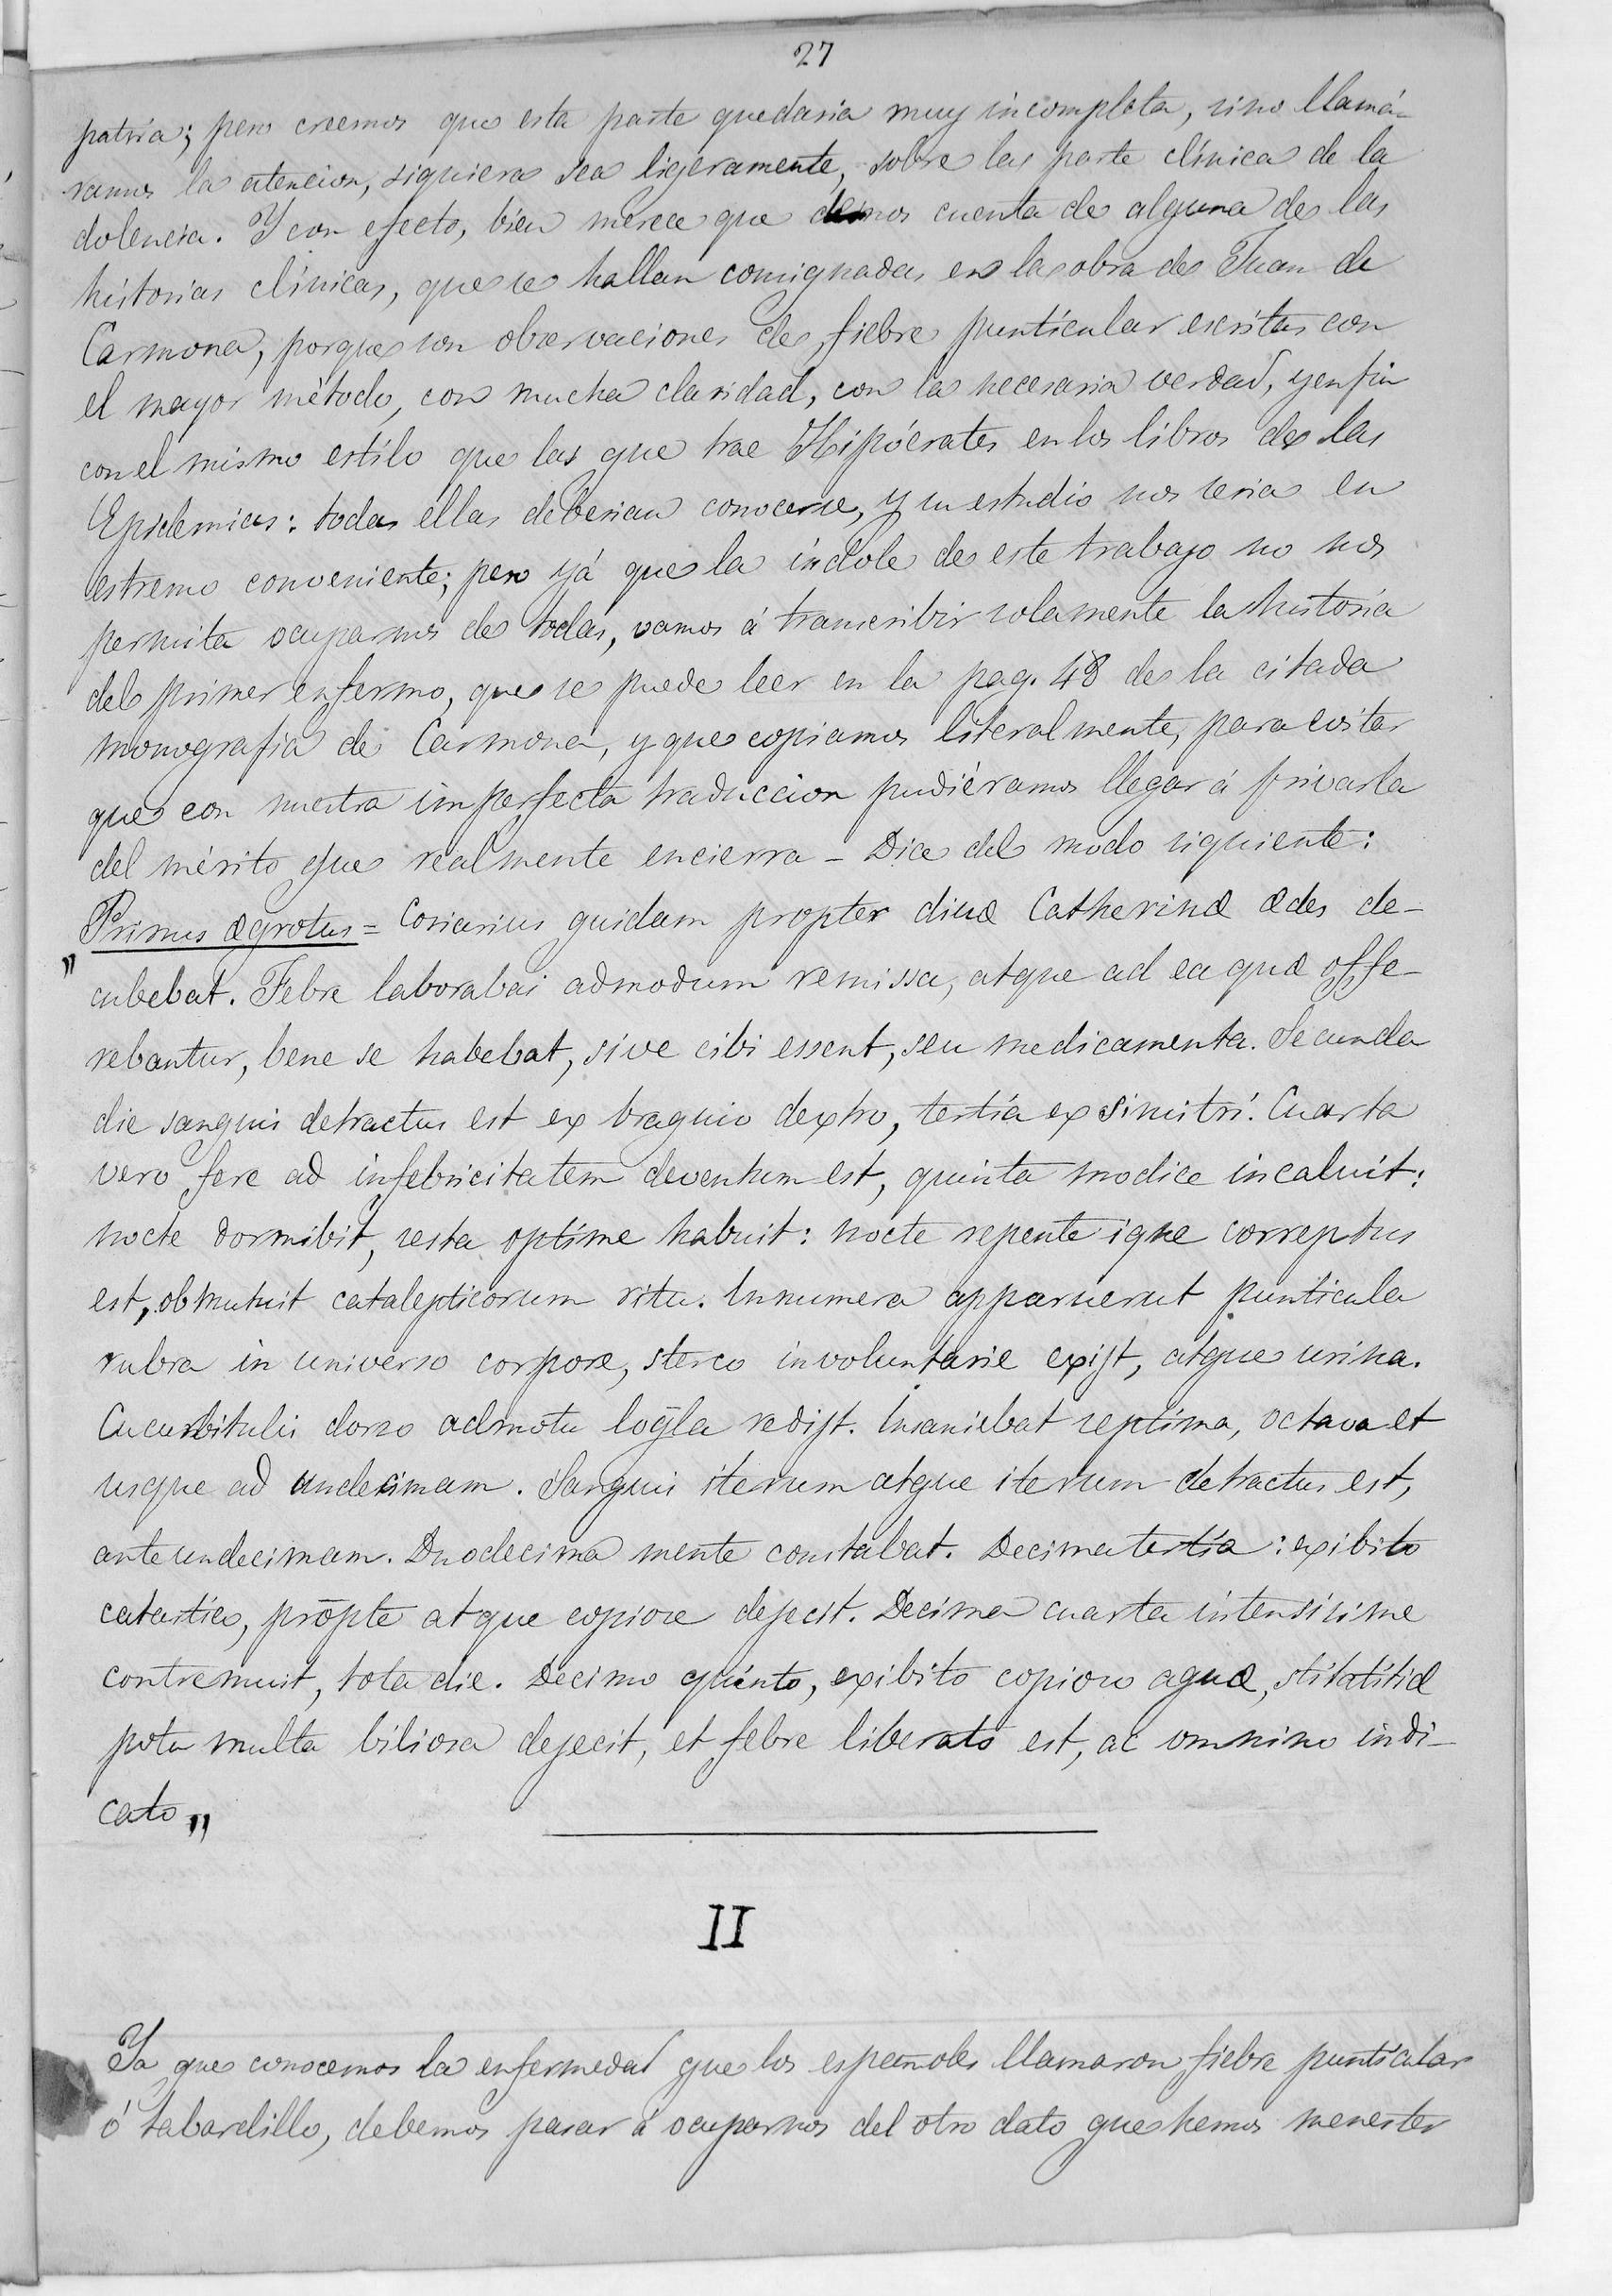 27
patria; pero creemos que esta parte quedaria muy incompleta, sino llamá-
ramos la atencion, siquiera sea lijeramente, sobre la parte clínica de la
dolencia. Y con efecto, bien merece que demos cuenta de alguna de las
historias clínicas, que se hallan consignadas en la obra de Juan de
Carmona, porque son observaciones de fiebre puntícular escritas con
el mayor método, con mucha claridad, con la necesaria verdad, y en fin
con el mismo estilo que las que trae Hipócrates en los libros de las
Epidemias: todas ellas deberian conocerse, y su estudio nos seria en
estremo conveniente; pero yá que la índole de este trabajo no nos
permita ocuparnos de todas, vamos á transcribir solamente la historia
del primer enfermo, que se puede leer en la pag. 48 de la citada
monografía de Carmona, y que copiamos literalmente, para evitar
que con nuestra imperfecta traduccion pudiéramos llegar á privarla
del mérito que realmente encierra – Dice del modo siguiente:
Primus ægrotus = Coriarius quidam propter divæ Catherinæ ædes de-
" cubebat. Febre laborabai admodum remissa, atque ad ea quæ offe-
rebantur, bene se habebat, sive cibi essent, seu medicamenta. Secunda
die sanguis detractus est ex braquio dextro, tertía ex sinistrí. Cuarta
vero fere ad infebricitatem deventum est, quinta modice incaluit:
nocte dormibit, sesta optíme habuit: nocte repente igne correptus
est, obmutuit catalepticorum ritu. Innumera apparuerut puntícula
rubra in universo corpore, sterco involuntarie exijt, atque urina.
Cucurbitulis dorso admotu logla redijt. Insaniebat septíma, octava et
usque ad undecimam. Sanguis iterum atque iterum detractus est,
ante undecimam. Duodecima mente constabat. Decimatertía: exibito
catartíco, prōpte atque copiose dejecit. Decima cuarta intensisime
contremuit, tota die. Decimo quinto, exibito copioso aquæ, stitatítiæ
potu multa biliosa dejecit, et febre liberato est, ac omnino indi-
cato "
II
Ya que conocemos la enfermedad que los españoles llamaron fiebre puntícular
ó tabardillo, debemos pasar á ocuparnos del otro dato que hemos menester